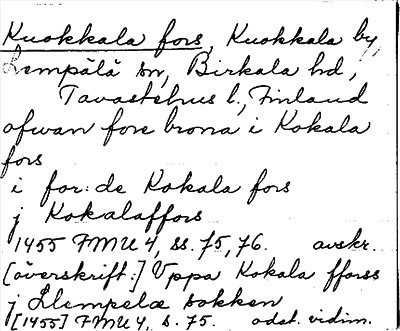 Kuokkala fors, Kuokkala by,
Lempälä sn, Birkala hd,
Tavastehus l., Finland
ofwan fore brona i Kokala
fors
i for: de Kokala fors
j Kokalaffors
1455 FMU 4, ss. 75, 76. avskr.
[överskrift:] Vppa Kokala fforss
j Llempelæ sokken
[1455] FMU 4, s. 75. odat. vidim.